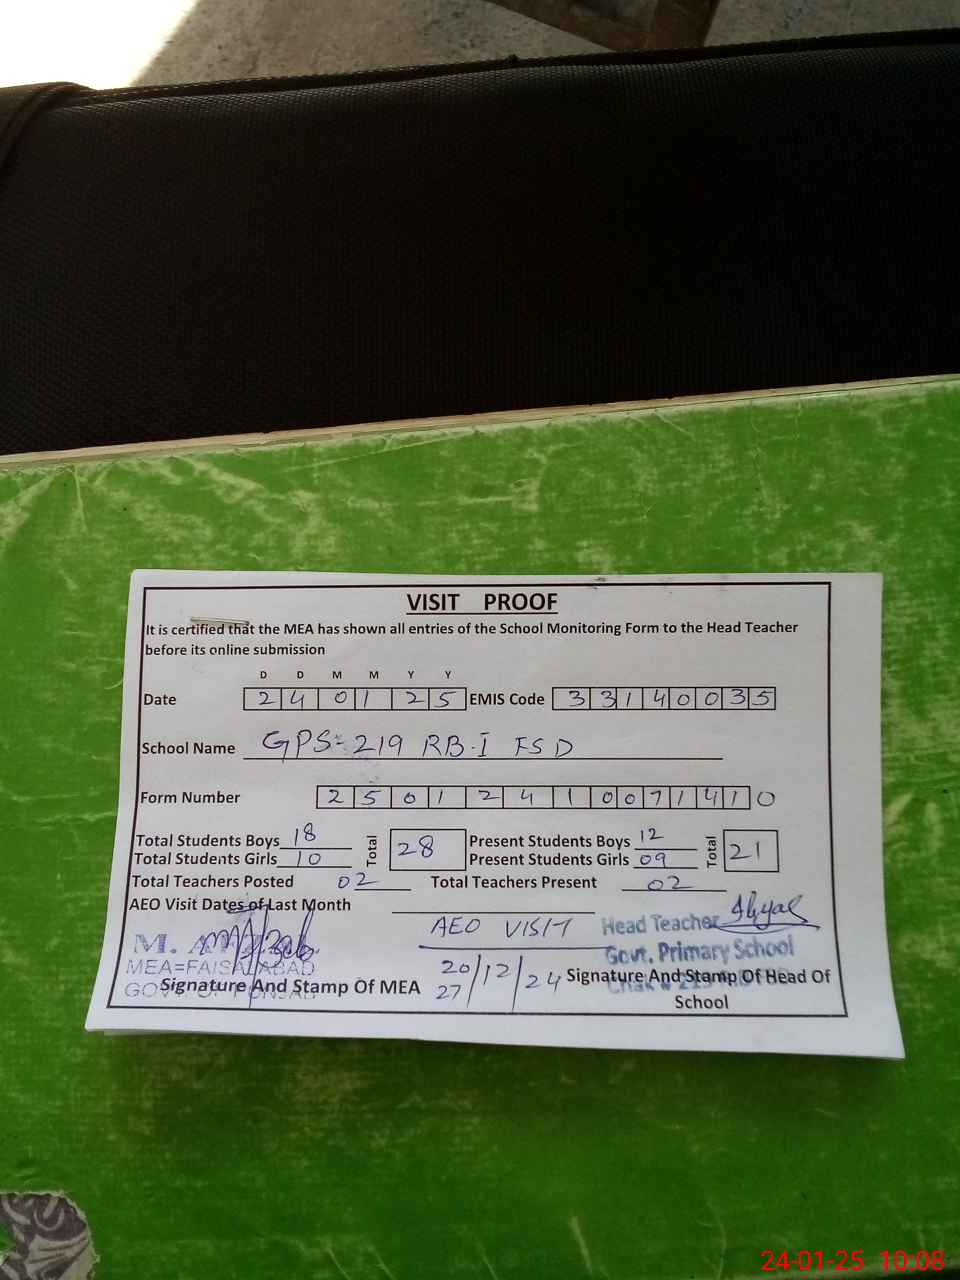 VISIT PROOF
It is certified that the MEA has shown all entries of the School Monitoring Form to the Head Teacher
before its online submission
D D M M Y Y
Date 2 4 0 1 2 5 EMIS Code 3 3 1 4 0 0 3 5
School Name GPS-219 RB-I FSD
Form Number 2 5 0 1 2 4 1 0 0 7 1 4 1 0
Total Students Boys 18 Total 28 Present Students Boys 12 Total 21
Total Students Girls 10 Present Students Girls 09
Total Teachers Posted 02 Total Teachers Present 02
AEO Visit Dates of Last Month
AEO VISIT
Head Teacher
M.
Govt. Primary School
MEA=FAISALABAD
20/12/24
27
GOVT. OF PUNJAB
Signature And Stamp Of MEA
Signature And Stamp Of Head Of
School
24-01-25 10:08